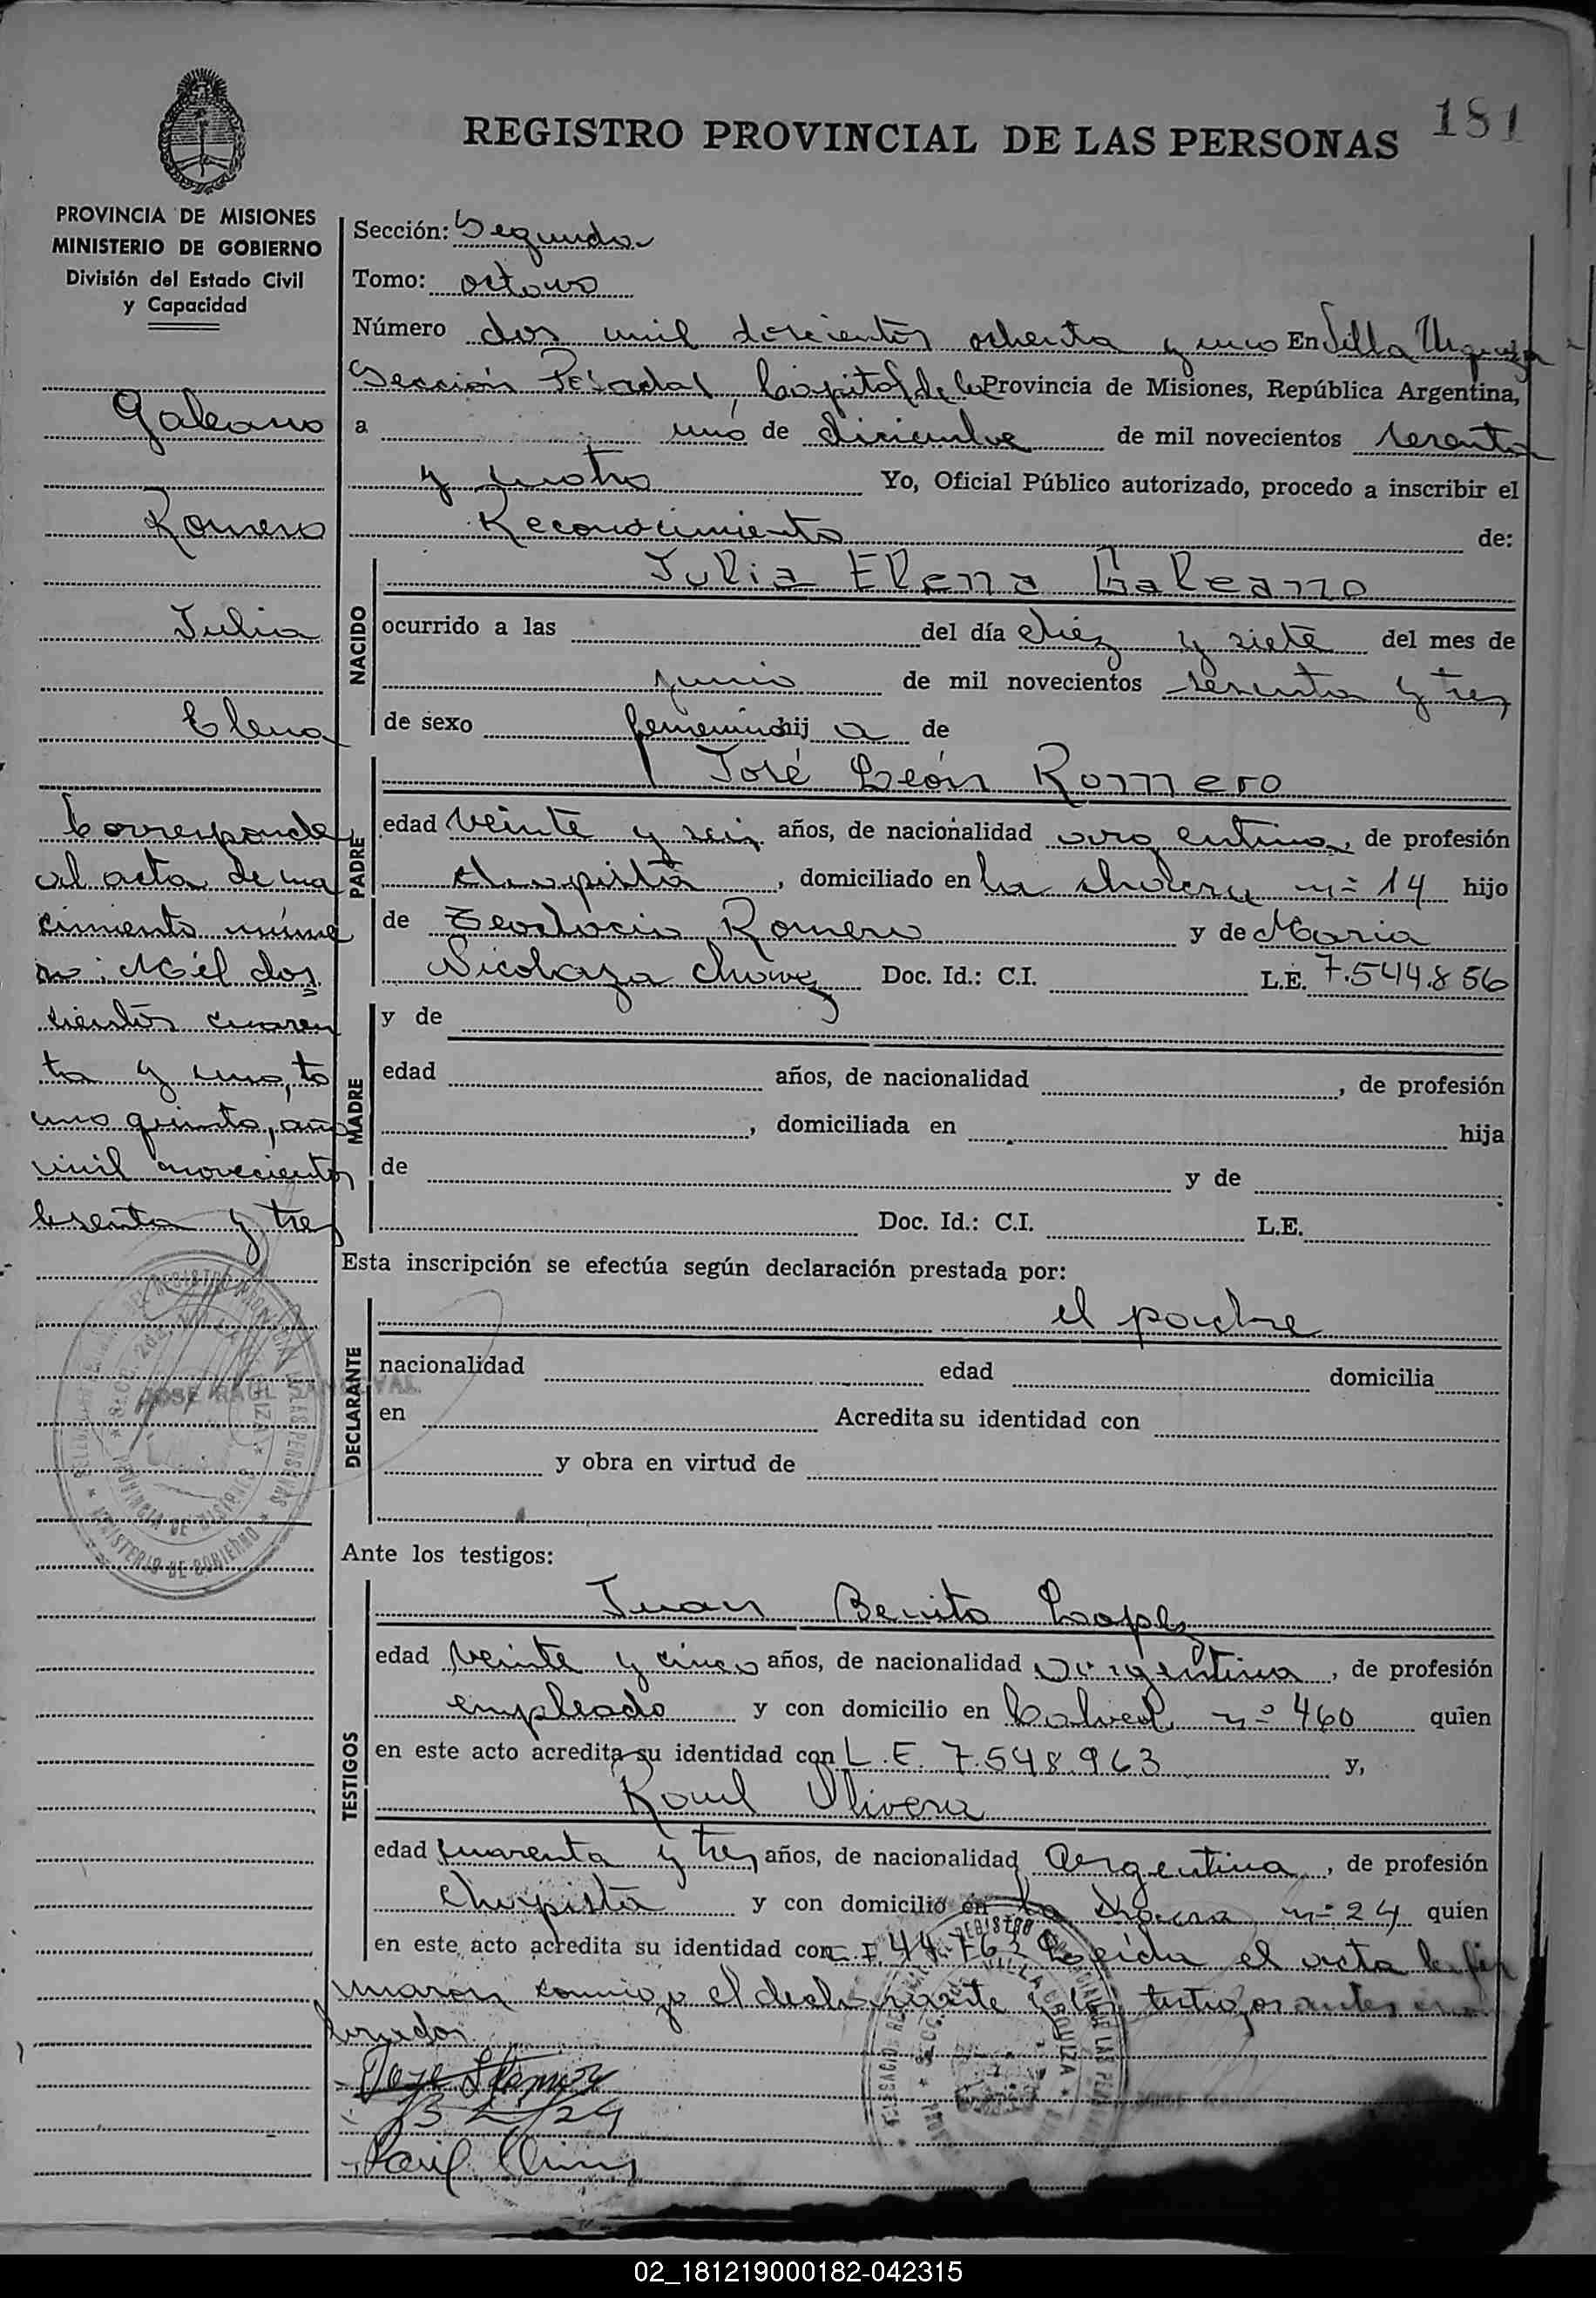 181
REGISTRO PROVINCIAL DE LAS PERSONAS
PROVINCIA DE MISIONES
MINISTERIO DE GOBIERNO
División del Estado Civil
y Capacidad
Galeano
Romero
Julia
Elena
Corresponde
al acta de na
cimiento núme
ro: Mil dos
cientos cuaren
ta y uno, to
mo quinto, año
mil novecientos
sesenta y tres
JOSE RAUL SANDOVAL
Sección: Segunda
Tomo: octavo
Número dos mil doscientos ochenta y uno En Villa Urquiza
Sección Posadas, Capital de la Provincia de Misiones, República Argentina,
a uno de diciembre de mil novecientos sesenta
y cuatro Yo, Oficial Público autorizado, procedo a inscribir el
Reconocimiento de:
NACIDO
Julia Elena Galeano
ocurrido a las del día diez y siete del mes de
junio de mil novecientos sesenta y tres
de sexo femenino hij a de
PADRE
José León Romero
edad veinte y seis años, de nacionalidad argentina, de profesión
chapista, domiciliado en La chacra nº 14 hijo
de Romero y de Maria
Nicolaza Chavez Doc. Id.: C.I. L.E. 7.544.856
MADRE
y de
edad años, de nacionalidad , de profesión
, domiciliada en hija
de y de
Doc. Id.: C.I. L.E.
Esta inscripción se efectúa según declaración prestada por:
DECLARANTE
el padre
nacionalidad edad domicilia
en Acredita su identidad con
y obra en virtud de
Ante los testigos:
TESTIGOS
Juan Benito Lopez
edad veinte y cinco años, de nacionalidad argentina, de profesión
empleado y con domicilio en nº 460 quien
en este acto acredita su identidad con L.E. 7.548.963 y,
Raul Olivera
edad cuarenta y tres años, de nacionalidad Argentina, de profesión
chapista y con domicilio en La chacra nº 24 quien
en este acto acredita su identidad con Leída el acta la fir
maron conmigo el declarante y los testigos antes
02_181219000182-042315